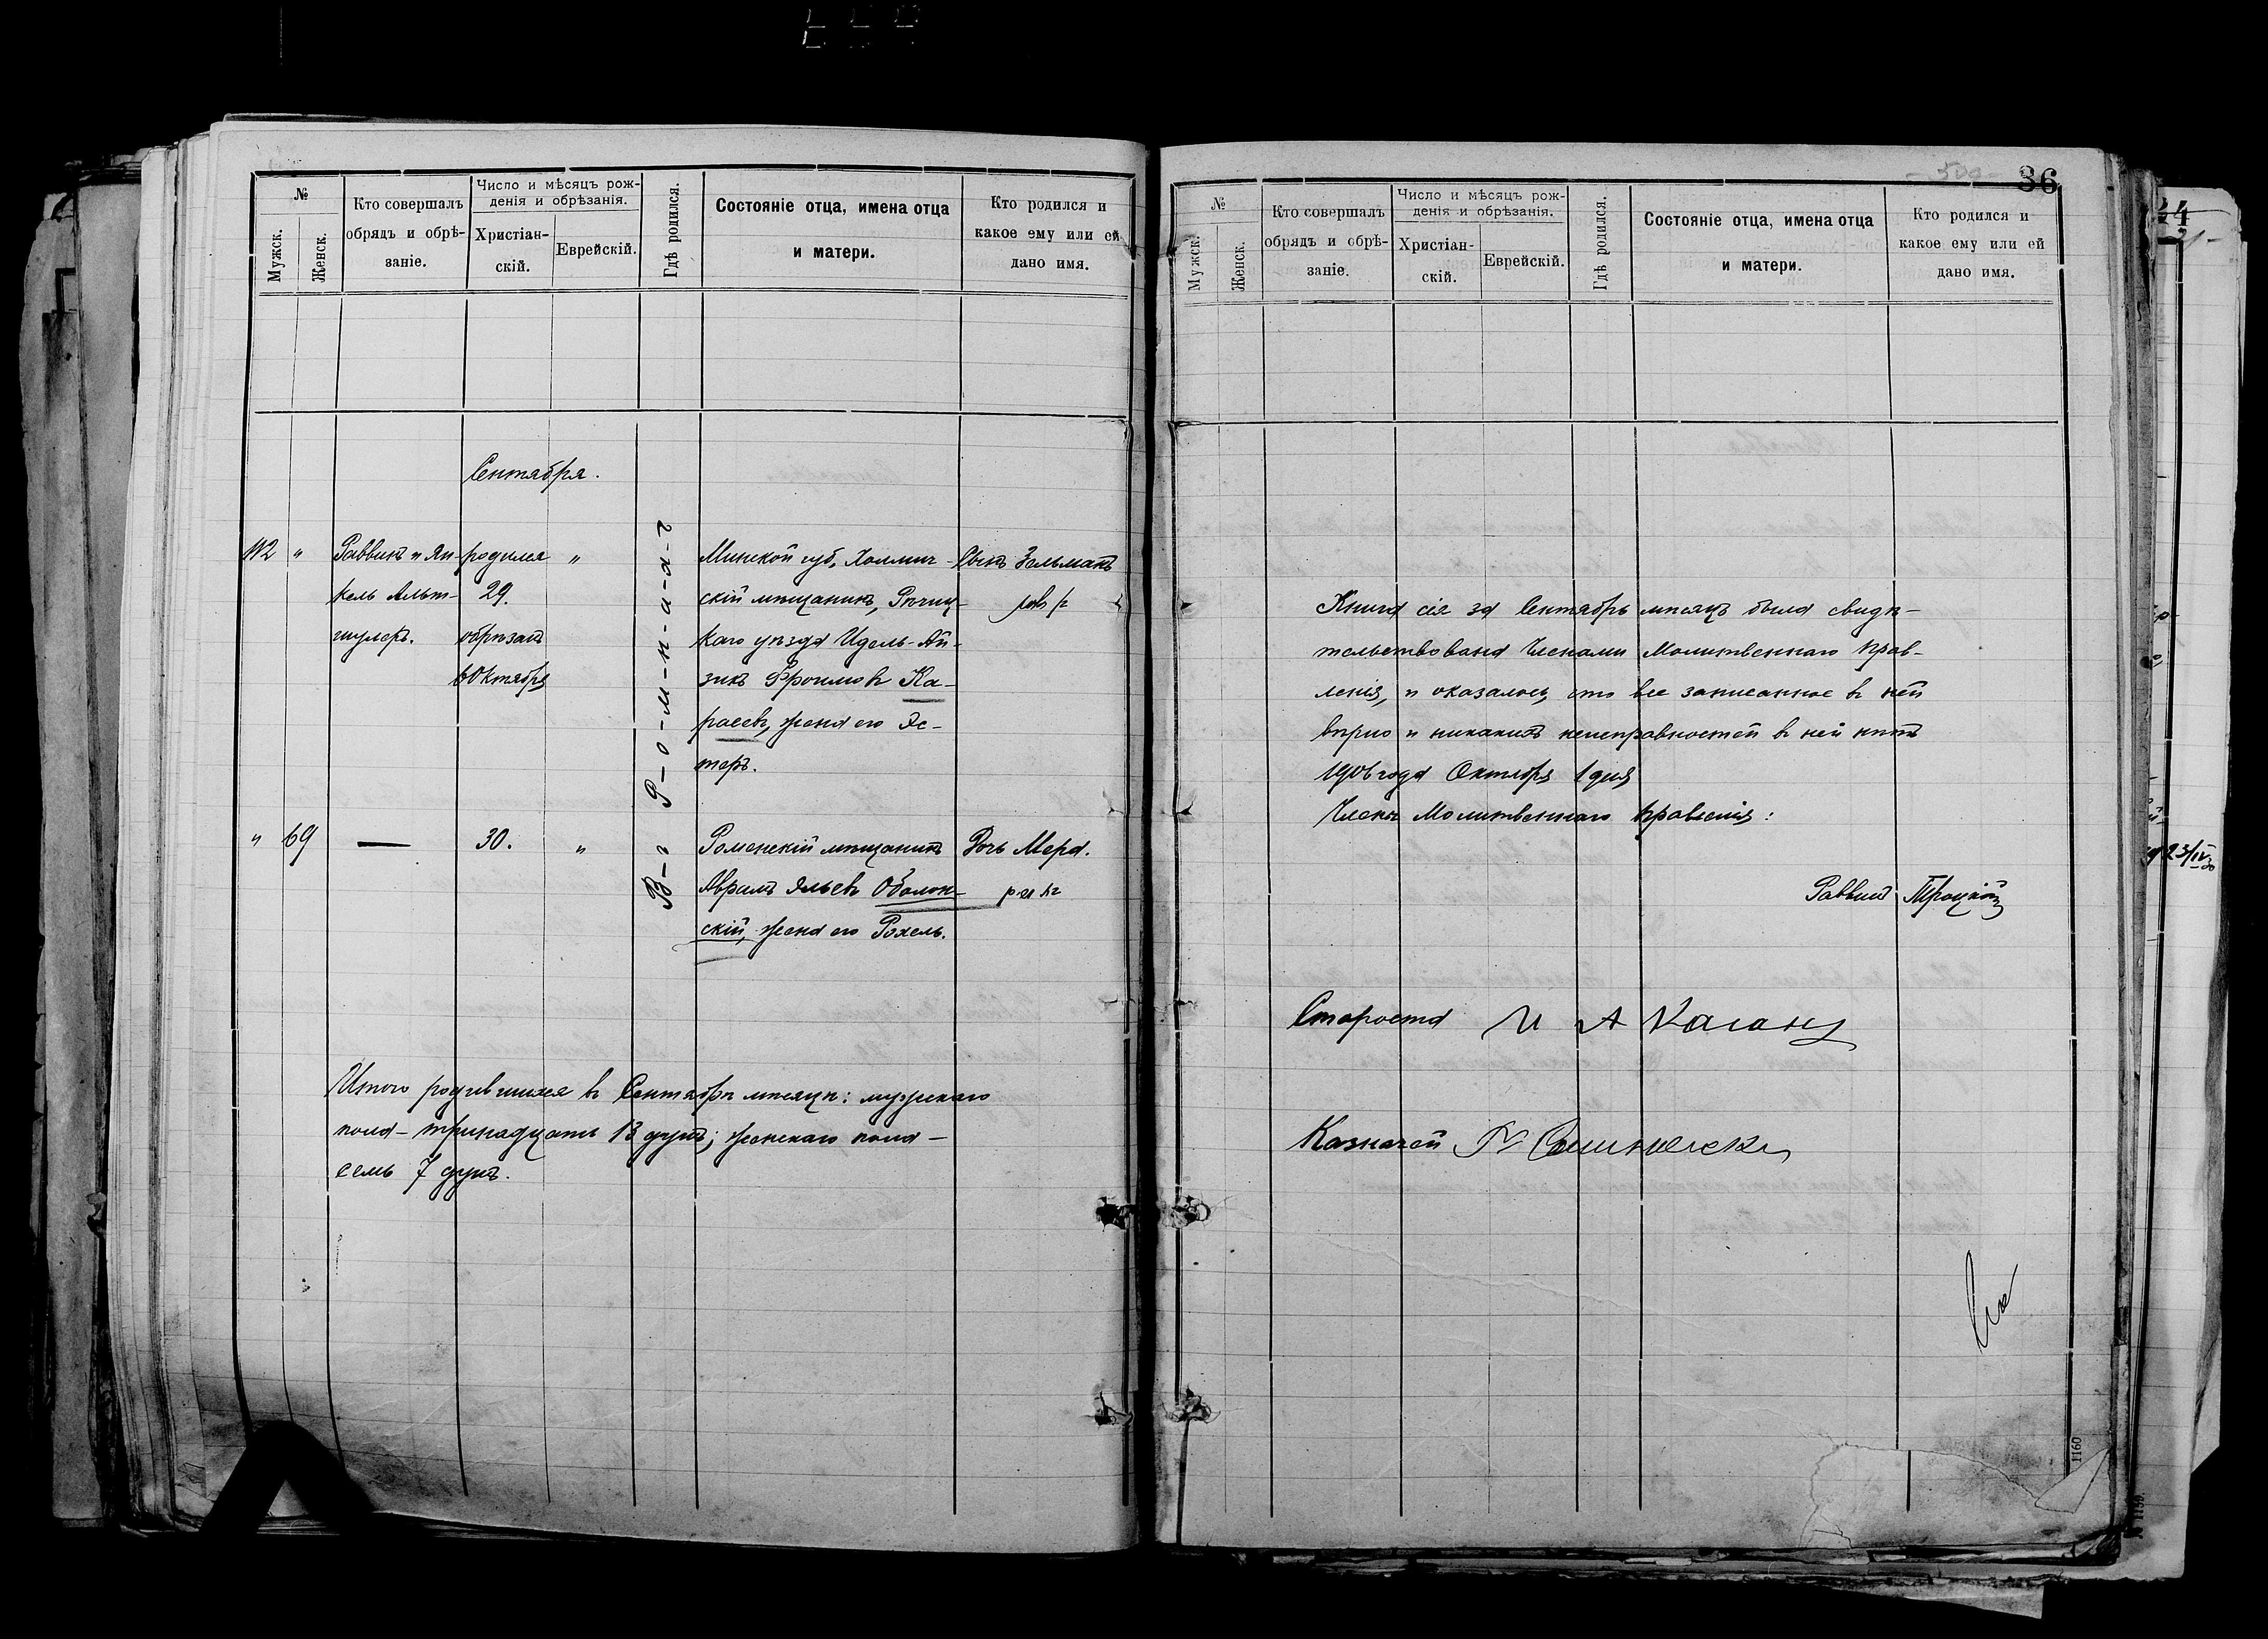 №
Мужск.
Женск.
Кто совершалъ
обрядъ и обрѣ-
заніе.
Число и мѣсяцъ рож-
денія и обрѣзанія.
Христіан-
скій.
Еврейскій.
Гдѣ родился.
Состояніе отца, имена отца
и матери.
Кто родился и
какое ему или ей
дано имя.
Сентября.
112 " Раввинъ и Ян- родился " Минской губ. Холмич- Сынъ Зельманъ
кель Альт- 29. скій мѣщанинъ, Рѣчиц-
шулеръ. обрѣзанъ каго уѣзда Идель-Ай-
6 Октября зикъ Фроимовъ Ка-
расевъ, жена его Эс-
теръ.
В-ъ Р-о-м-н-а-х-ъ
" 69 — 30. " Роменскій мѣщанинъ Дочь Мера.
Аврамъ Эльевъ Оболон-
скій, жена его Рохель.
Итого родившихся въ Сентябрѣ мѣсяцѣ: мужскаго
пола - тринадцать 13 душъ; женскаго пола -
семь 7 душъ.
36
№
Мужск.
Женск.
Кто совершалъ
обрядъ и обрѣ-
заніе.
Число и мѣсяцъ рож-
денія и обрѣзанія.
Христіан-
скій.
Еврейскій.
Гдѣ родился.
Состояніе отца, имена отца
и матери.
Кто родился и
какое ему или ей
дано имя.
Книга сія за Сентябрь мѣсяцъ была свидѣ-
тельствована Членами Молитвеннаго Прав-
ленія, и оказалось, что все записанное въ ней
вѣрно и никакихъ неисправностей въ ней нѣтъ
1906 года Октября 1 дня
Члены Молитвеннаго Правленія:
Раввинъ Троцкій
Староста И А Каганъ
Казначей
1160